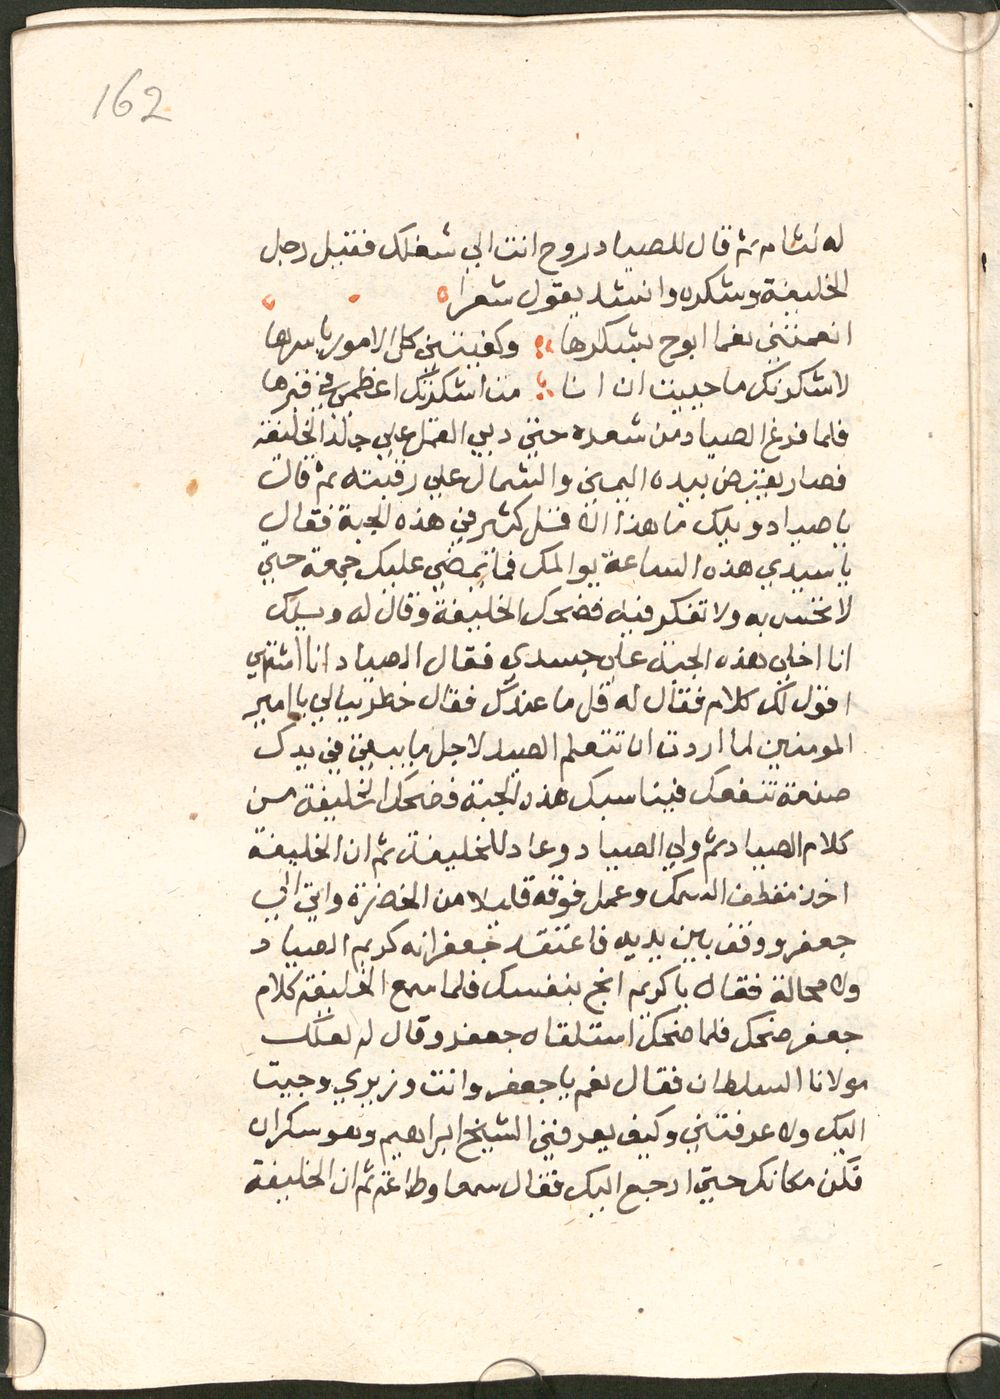 162
له لثام ثم قال للصياد روح انت الي شغلك فقبل رجل
الخليفة وشكره وانشد يقول شعرا
انعمتني نعما ابوح بشكرها وكفيتني كل الامور باسرها
لاشكرنك ما حييت ان انا مت اشكرنك اعظمي في قبرها
فلما فرغ الصياد من شعره حتي دبي القمل علي جلد الخليفة
فصار يقبض بيده اليمين والشمال علي رقبته ثم قال
يا صياد ويلك ما هذا القمل كثير في هذه الجبة فقال
يا سيدي هذه الساعة يوالمك فما تمضي عليك جمعة حتي
لا تحس به ولا تفكر فيه فضحك الخليفة وقال له ويلك
انا اخلي هذه الجبة علي جسدي فقال الصياد انا اشتهي
اقول لك كلام فقال له قل ما عندك فقال خطر ببالي يا امير
المومنين لما اردت ان تتعلم الصيد لاجل ما يبقي في يدك
صنعة تنفعك فيناسبك هذه الجبة فضحك الخليفة من
كلام الصياد ثم ولي الصياد وعاد للخليفة ثم ان الخليفة
اخذ مقطف السمك وعمل فوقه قليلا من الخضرة واتي الي
جعفر ووقف بين يديه فاعتقد جعفر انه كريم الصياد
ولا محالة فقال يا كريم انج بنفسك فلما سمع الخليفة كلام
جعفر ضحك فلما ضحك استلقاه جعفر وقال له لعلك
مولانا السلطان فقال نعم يا جعفر وانت وزيري وجيت
اليك ولا عرفتني وكيف يعرفني الشيخ ابراهيم وهو سكران
فكن مكانك حتي ارجع اليك فقال سمعا وطاعة ثم ان الخليفة